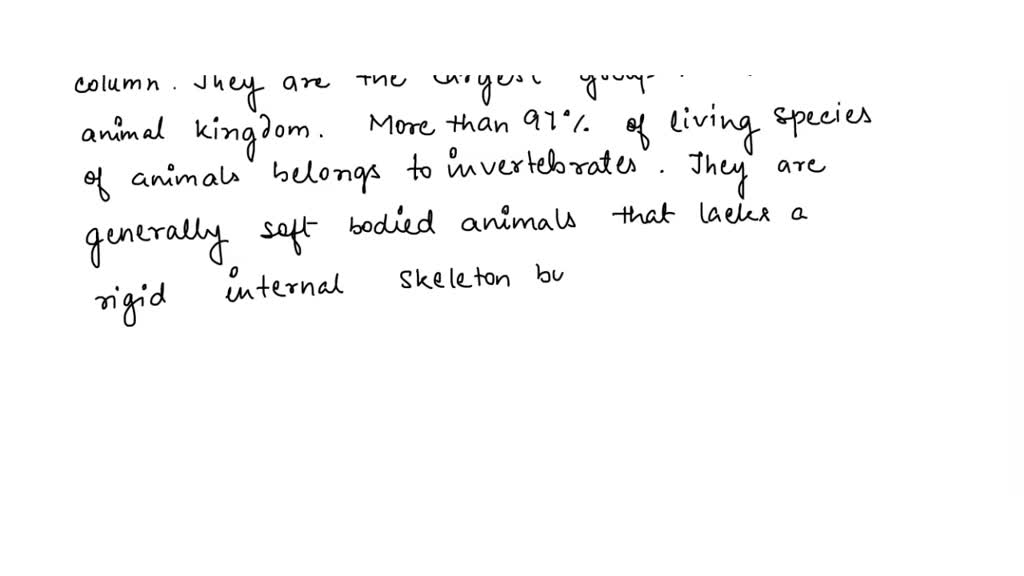 column. They are the largest group
animal kingdom. More than 97% of living species
of animals belongs to invertebrates. They are
generally soft bodied animals that lacks a
rigid internal skeleton bu